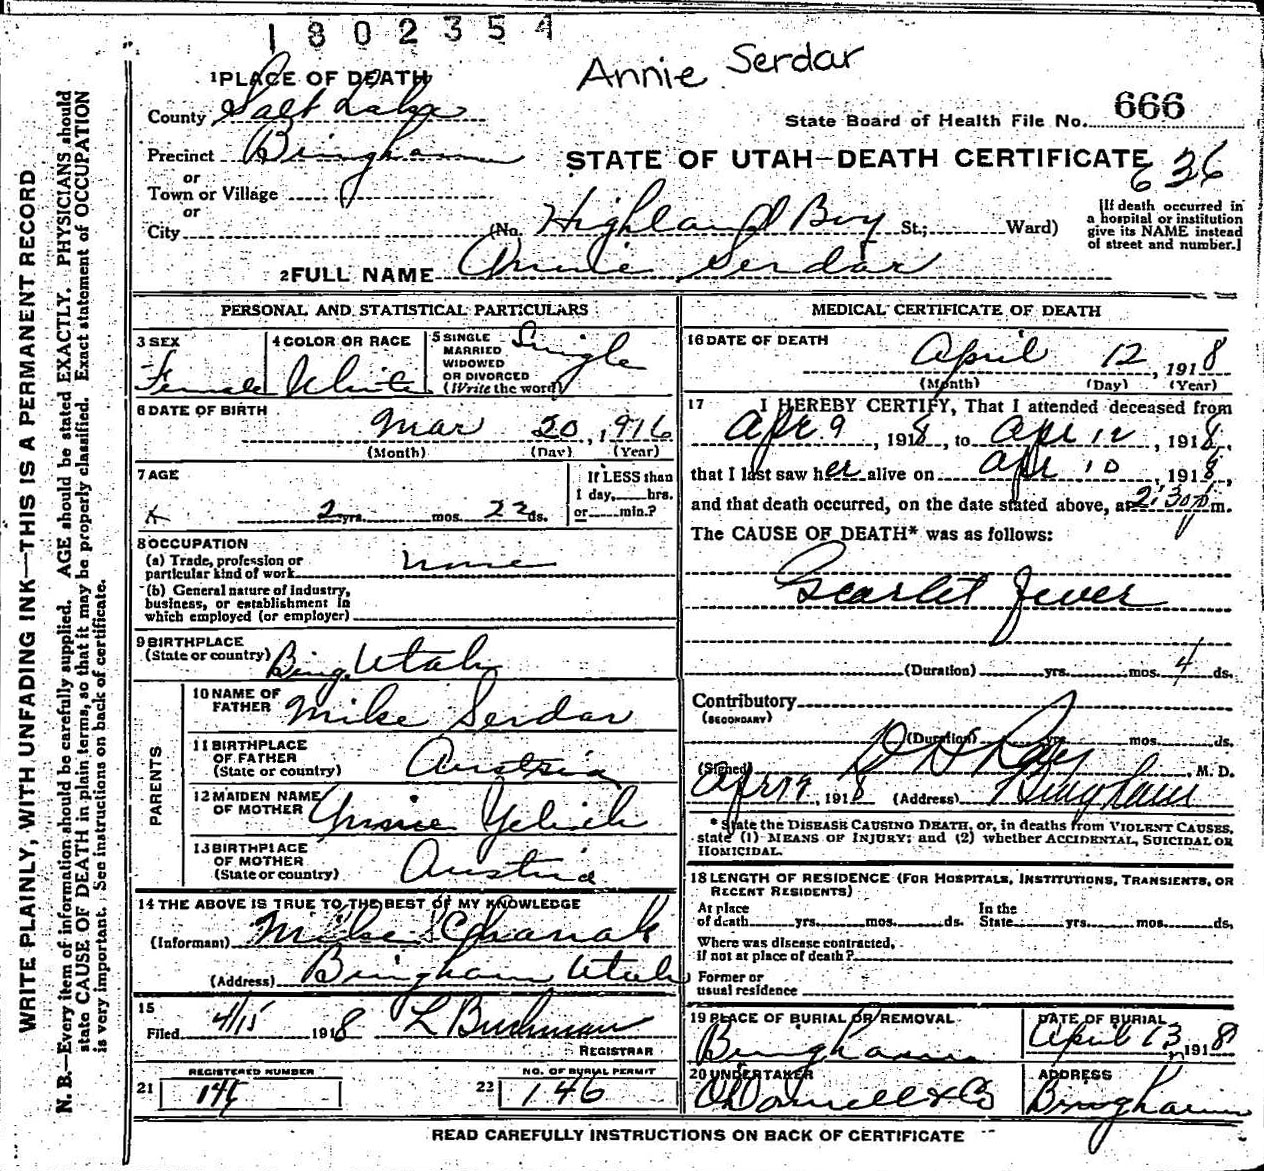 1802354
Annie Serdar
1 PLACE OF DEATH
County Salt Lake
State Board of Health File No. 666
Precinct Bingham
STATE OF UTAH—DEATH CERTIFICATE
636
or
Town or Village
or
City (No. Highland Boy St.; Ward)
[If death occurred in
a hospital or institution
give its NAME instead
of street and number.]
2 FULL NAME Annie Serdar
PERSONAL AND STATISTICAL PARTICULARS
3 SEX
Female
4 COLOR OR RACE
White
5 SINGLE
MARRIED
WIDOWED
OR DIVORCED
(Write the word)
Single
6 DATE OF BIRTH
Mar 20, 1916
(Month) (Day) (Year)
7 AGE
2 yrs. mos. 22 ds.
If LESS than
1 day, hrs.
or min.?
8 OCCUPATION
(a) Trade, profession or
particular kind of work none
(b) General nature of industry,
business, or establishment in
which employed (or employer)
9 BIRTHPLACE
(State or country) Bing. Utah
PARENTS
10 NAME OF
FATHER Mike Serdar
11 BIRTHPLACE
OF FATHER
(State or country) Austria
12 MAIDEN NAME
OF MOTHER Yelich
13 BIRTHPLACE
OF MOTHER
(State or country) Austria
14 THE ABOVE IS TRUE TO THE BEST OF MY KNOWLEDGE
(Informant) Mike
(Address) Bingham Utah
15
Filed 4/15 1918 L Buchman
REGISTRAR
REGISTERED NUMBER
21
NO. OF BURIAL PERMIT
22 146
MEDICAL CERTIFICATE OF DEATH
16 DATE OF DEATH
April 12, 1918
(Month) (Day) (Year)
17 I HEREBY CERTIFY, That I attended deceased from
Apr. 9, 1918, to Apr 12, 1918,
that I last saw her alive on Apr 10, 1918,
and that death occurred, on the date stated above, at 2:30 p m.
The CAUSE OF DEATH* was as follows:
Scarlet Fever
(Duration) yrs. mos. 4 ds.
Contributory
(SECONDARY)
(Duration) yrs. mos. ds.
(Signed) D H Ray, M. D.
Apr, 1918 (Address) Bingham
* State the DISEASE CAUSING DEATH, or, in deaths from VIOLENT CAUSES,
state (1) MEANS OF INJURY; and (2) whether ACCIDENTAL, SUICIDAL OR
HOMICIDAL.
18 LENGTH OF RESIDENCE (FOR HOSPITALS, INSTITUTIONS, TRANSIENTS, OR
RECENT RESIDENTS)
At place
of death yrs. mos. ds.
In the
State yrs. mos. ds.
Where was disease contracted,
if not at place of death?
Former or
usual residence
19 PLACE OF BURIAL OR REMOVAL
Bingham
DATE OF BURIAL
April 13, 1918
20 UNDERTAKER
O'Donnell & Co
ADDRESS
Bingham
READ CAREFULLY INSTRUCTIONS ON BACK OF CERTIFICATE
WRITE PLAINLY, WITH UNFADING INK—THIS IS A PERMANENT RECORD
N. B.—Every item of information should be carefully supplied. AGE should be stated EXACTLY. PHYSICIANS should
state CAUSE OF DEATH in plain terms, so that it may be properly classified. Exact statement of OCCUPATION
is very important. See instructions on back of certificate.